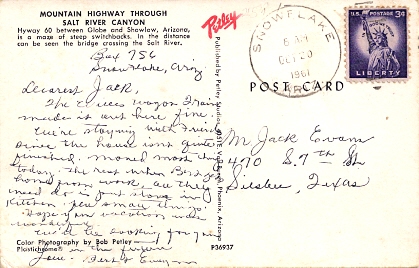 MOUNTAIN HIGHWAY THROUGH
SALT RIVER CANYON
Hyway 60 between Globe and Showlow, Arizona,
is a maze of steep switchbacks. In the distance
can be seen the bridge crossing the Salt River.
Box 756
Snowflake, Ariz
Dearest Jack,
The Evans wagon Train
made it out here fine.
We're staying with friends
since the house isn't quite
finished. Moved most things
today. The rest when Bert gets
home from work. all they
need do is put stove in
kitchen few small things.
Hope your vacation was
wonderful.
We'll be looking for you
in the future
Love - Bert & Evelyn
Color Photography by Bob Petley
Plastichrome
P36937
Petley
Published by Petley Studios, Phoenix, Arizona
SNOWFLAKE
PM
OCT 20
1961
ARIZ.
U.S. POSTAGE 3¢
LIBERTY
POST CARD
Mr. Jack Evans
470 S. 7th St
Silsbee, Texas